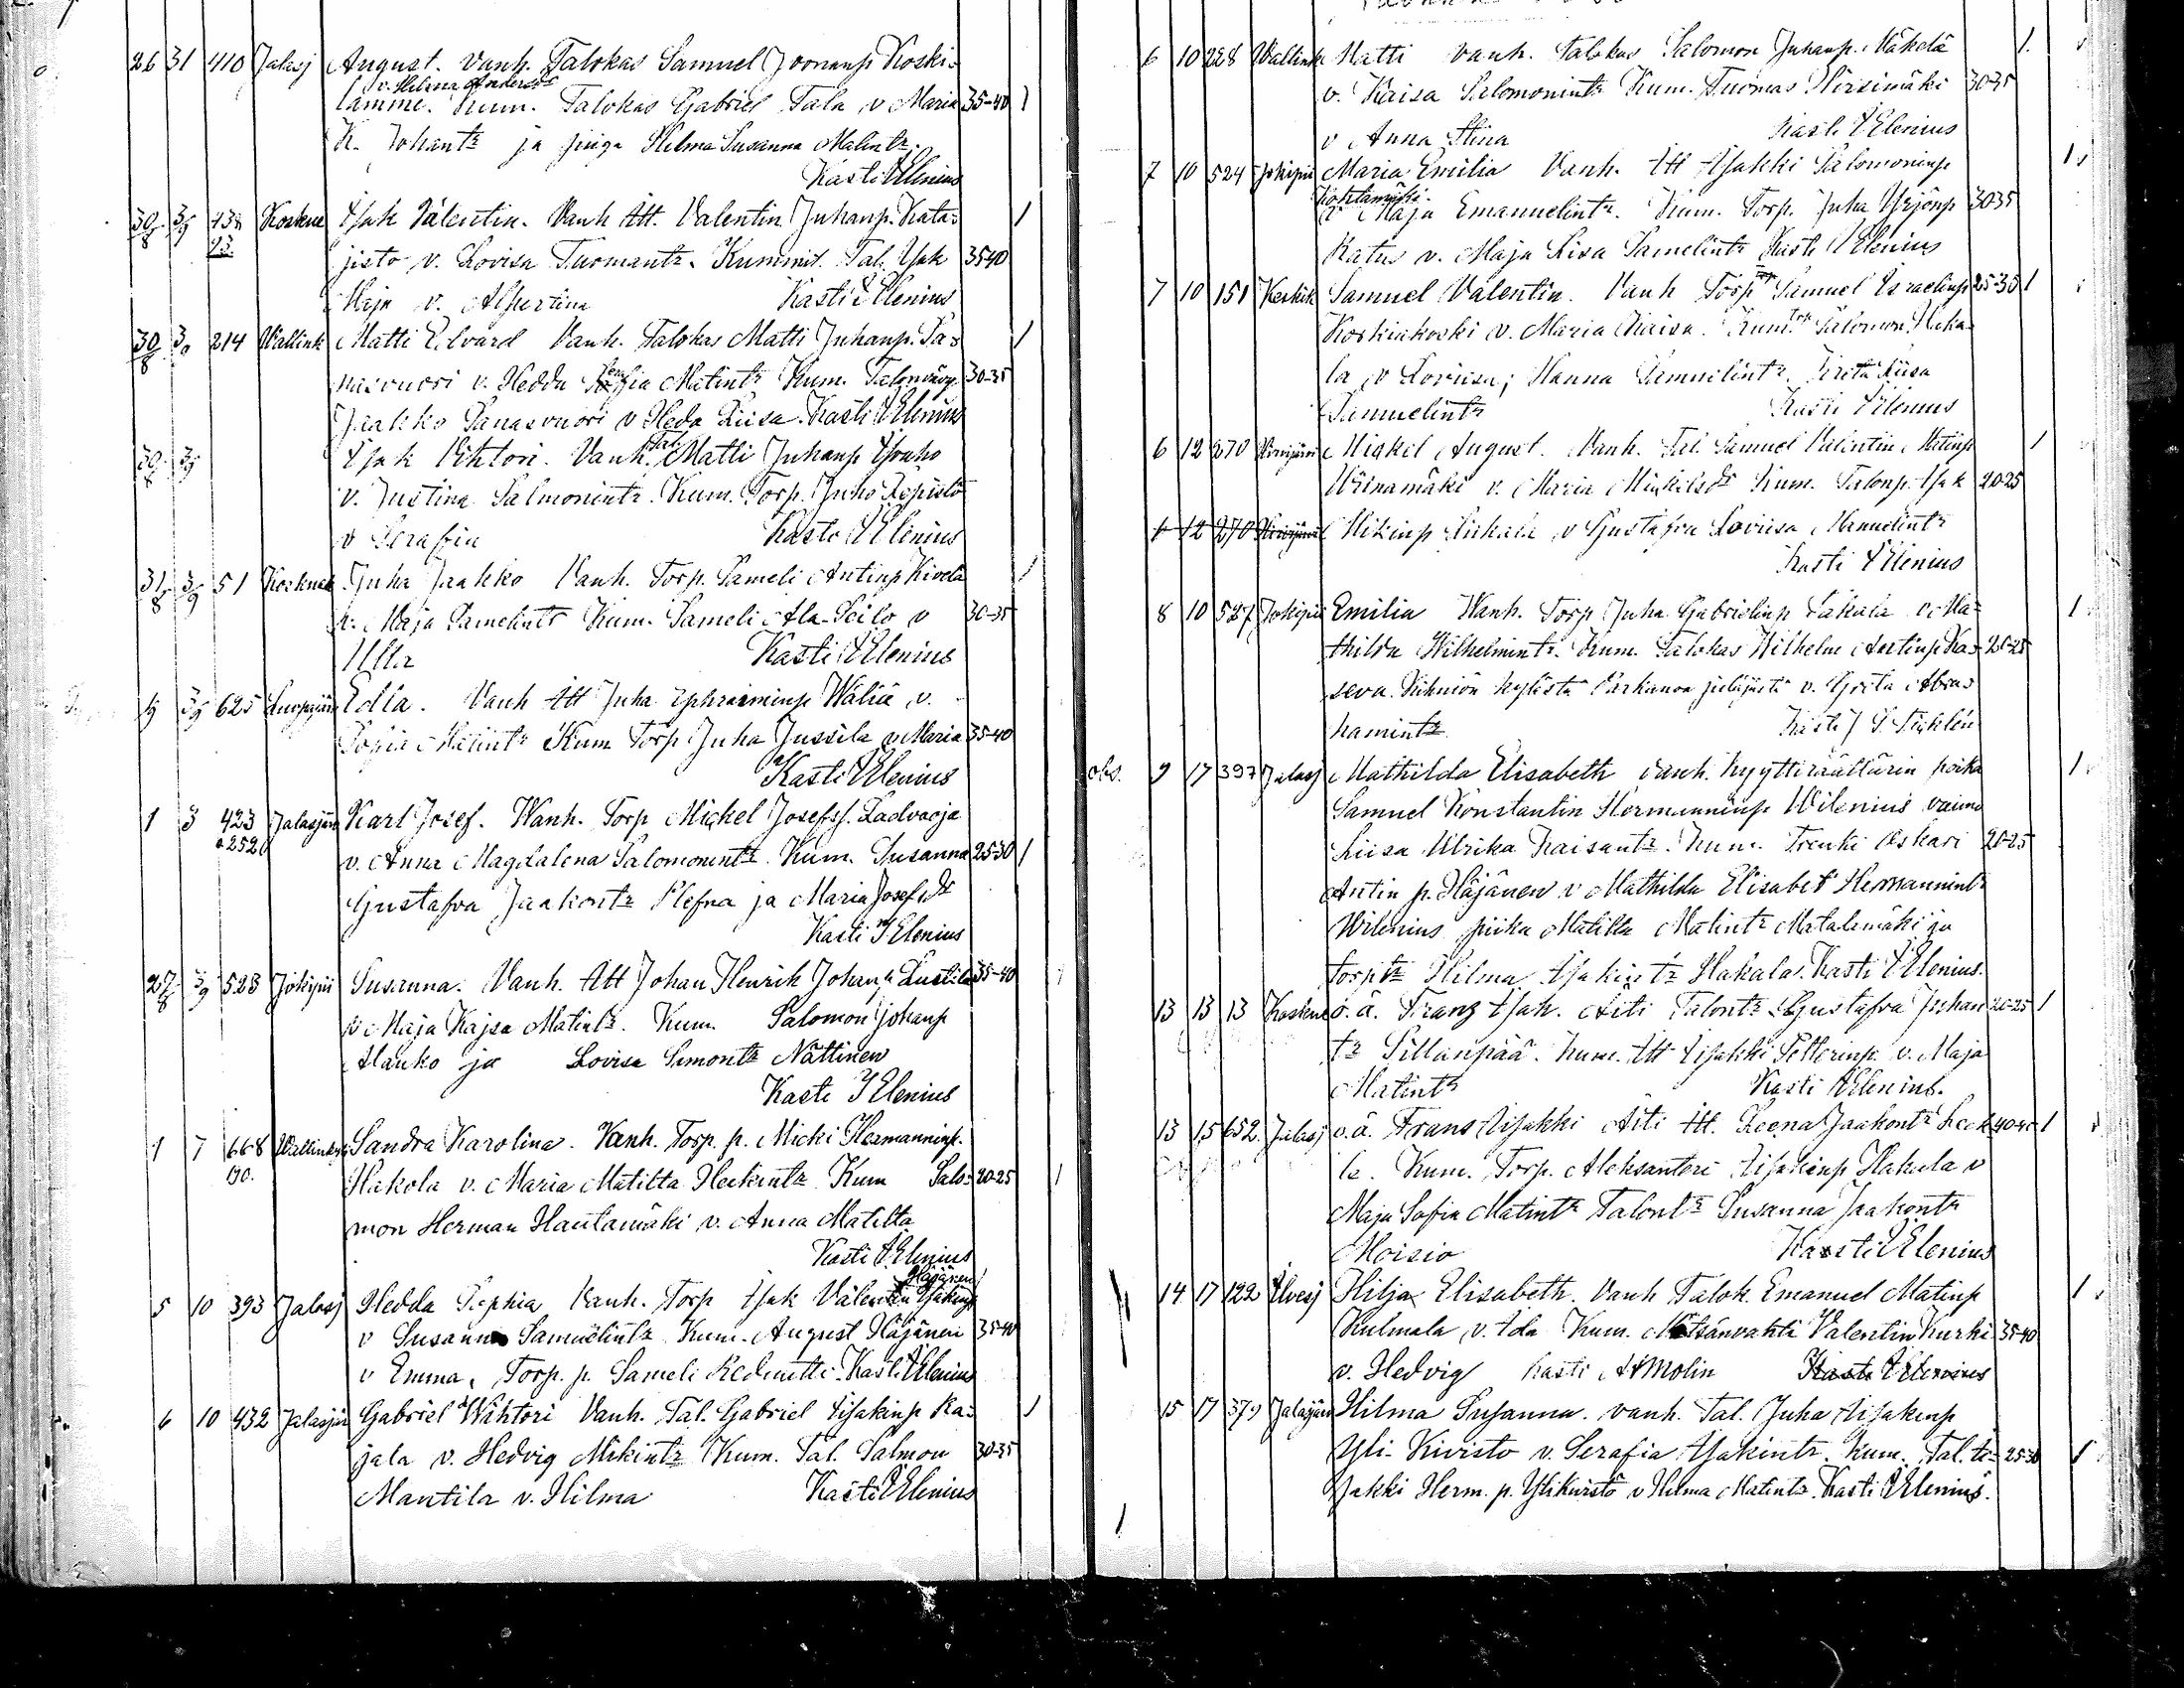 26 31 410 Jalasj August. Vanh. Talokas Samuel Joonanp Koski-
v. Helena Andersdr
lammi. Kum. Talokas Gabriel Tala v Maria 35-40 1
K. Johantr ja piiga Hilma Susanna Matintr.
Kasti Elenius
30/8 3/9 438 Koskue Isak Valentin. Vanh Itt. Valentin Juhanp. Kata- 1
23
jisto v. Lovisa Tuomantr. Kummit. Tal. Isak 35-40
Maja v. Albertina Kasti Elenius
30/8 3/9 214 Wallink Matti Edvard Vanh. Talokas Matti Juhanp. Pa- 1
nasvuori v. Hedda Sofia Matintr Kum. Talonvävy 30-35
Jaakko Panasvuori v Heda Liisa. Kasti Elenius
30/8 3/9 Isak Vihtori. Vanh. Tal. Matti Juhanp
v. Justina Salmonintr. Kum. Torp. Juho Repistö
v Serafia Kasti Elenius
31/8 3/9 51 Koskue Juha Jaakko Vanh. Torp. Sameli Antinp Kivelä 1
v. Maja Samelintr Kum. Sameli Ala-Peilo v 30-35
Ulla Kasti Elenius
1/9 3/9 625 Luopajärv Edla. Vanh Itt Juha Ephraiminp Waliä v.
Matintr Kum Torp Juha Jussila v Maria 35-40
Kasti Elenius
1 3 423 Jalasjärv Karl Josef. Wanh. Torp Mickel Josefss. Ladvaoja
252
v. Anna Magdalena Salomonintr. Kum. Susanna 25-30 1
Gustafva Jaakontr ja Maria Josefsdr
Kasti J Elenius
27/8 3/9 523 Jokipii Susanna. Vanh. Itt Johan Henrik Johanp Lustila 35-40 1
v. Maja Kajsa Matintr. Kum. Salomon Johanp
Hanko ja Lovisa Simontr Nättinen
Kasti J Elenius
1 7 668 Wallinky Sandra Karolina. Vanh. Torp. p. Micki Hermanninp.
190.
Hakola v. Maria Matilta Heikintr Kum Salo- 20-25 1
mon Herman Hautamäki v. Anna Matilta
Kasti Elenius
Häjänen
5 10 393 Jalasj Hedda Sophia Vanh. Torp Isak Valentin Isakinp
v Susanna Samuelintr Kum. August Häjänen 35-40
v Emma, Torp. p. Sameli Kasti Elenius
6 10 432 Jalasjär Gabriel Wihtori Vanh. Tal. Gabriel Iisakinp Ra- 1
jala v. Hedvig Mikintr Kum. Tal. Salmon 30-35
Mantila v. Hilma Kasti Elenius
6 10 228 Wallink Matti vanh. Talokas Salomon Juhanp. Mäkelä 1.
v. Kaisa Salomonintr Kum. Tuomas Hirsimäki 30-35
v Anna Stina Kasti Elenius
7 10 524 Jokipii Maria Emilia Vanh. Itt Isakki Salomoninp 1
v Maja Emanuelintr. Kum. Torp. Juha Yrjönp 30-35
Katus v. Maja Lisa Samelintr Kasti Elenius
7 10 151 Keskik Samuel Valentin. Vanh Torp Samuel Israelinp 25-30 1
Koskiakoski v. Maria Kaisa. Kum. Torp Salomon Haka-
la v Loviisa; Hanna Samuelintr. Kreta Liisa
Samuelintr Kasti Elenius
6 12 270 Hirvijärvi Mickel August. Vanh. Tal. Samuel Valentin Matinp 1
v. Maria Mickelsdr Kum. Talonp. Isak 20-25
6 12 270 Hirvijärvi Mikinp v Gustafva Loviisa Manuelintr
Kasti Elenius
8 10 527 Jokipii Emilia Wanh. Torp Juha Gabrielinp Takala v. Ma- 1
thilda Wilhelmintr. Kum. Talokas Wilhelm Antinp Ka- 20-25
seva Kihniön kylästä Parkanon pitäjästä v. Greta Abra-
hamintr. Kasti
obs. 9 17 397 Jalasj Mathilda Elisabeth vanh. kyyttiräätärin poika 1
Samuel Konstantin Hermanninp Wilenius vaimo
Liisa Ulrika Kaisantr. Kum. Trenki Oskari 20-25
Antin p. Häjänen v Mathilda Elisabet Hermannintr
Wilenius piika Matilta Matintr Matalamäki ja
torptr Hilma Isakintr Hakala. Kasti Elenius.
13 13 13 Koskue o. ä. Franz Isak. Äiti Talontr Gustafva Juhan 20-25 1
tr Sillanpää. Kum. Itt Iisakki Petterinp. v. Maja
Matintr Kasti Elenius.
13 15 652 Jalasj o. ä. Frans Iisakki Äiti Itt. Leena Jaakontr 40-45 1
la. Kum. Torp. Aleksanteri Iisakinp Hakala v
Maja Sofia Matintr Talontr Susanna Jaakontr
Moisio Kasti Elenius
14 17 122 Ilvesj Hilja Elisabeth. Vanh Talok. Emanuel Matinp 1
Kulmala v. Ida Kum. Metsänvahti Valentin Kurki 35-40
v. Hedvig Kasti A Molin Kasti Elenius
15 17 379 Jalasjärv Hilma Susanna. vanh. Tal. Juha Iisakinp
Yli-Kivistö v. Serafia Isakintr. Kum. Tal. Ii- 25-30 1
sakki Herm. p. Ylikivistö v Hilma Matintr. Kasti Elenius.